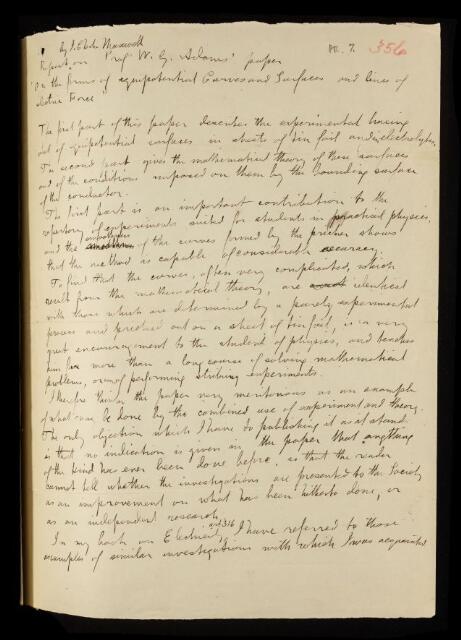 By J. Clerk Maxwell
RR. 7. 356
Report on Prof W. G. Adams' paper
'On the forms of equipotential Curves and Surfaces and lines of
Electric Force
The first part of this paper describes the experimental tracing
out of equipotential surfaces in sheets of tin foil and in electrolytes.
The second part gives the mathematical theory of these surfaces
and of the conditions imposed on them by the bounding surface
of the conductor.
The first part is an important contribution to the
repertory of experiments suited for students in practical physics,
and the of the curves formed by the pricker shows
that the method is capable of considerable accuracy.
To find that the curves, often very complicated, which
result from the mathematical theory, are identical
with those which are determined by a purely experimental
process and pricked out on a sheet of tinfoil, is a very
great encouragement to the student of physics, and teaches
him far more than a long course of solving mathematical
problems, or even of performing striking experiments.
I therefore think the paper very meritorious as an example
of what may be done by the combined use of experiment and theory.
The only objection which I have to publishing it as it stands
is that no indication is given in the paper that anything
of the kind has ever been done before, so that the reader
cannot tell whether the investigations are presented to the Society
as an improvement on what has been hitherto done, or
as an independent research.
In my book on Electricity and 316 I have referred to those
examples of similar investigations with which I was acquainted